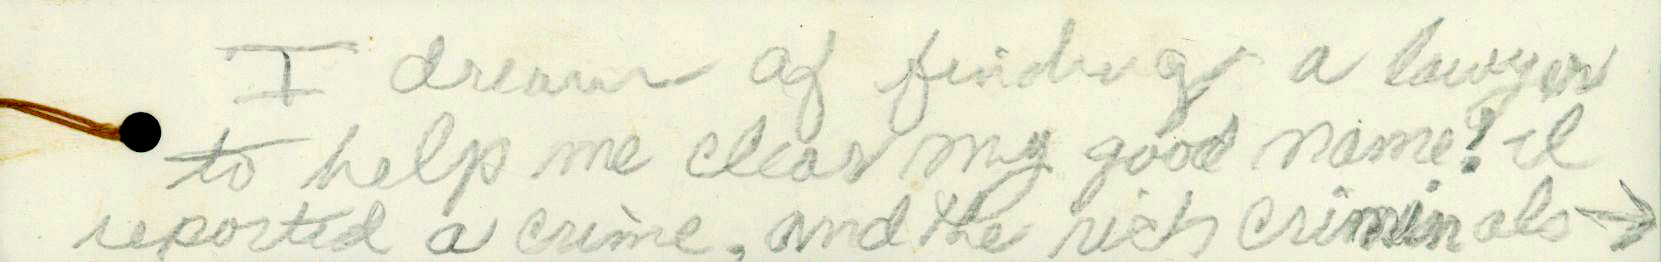 I dream of finding a lawyer
to help me clear my good name! I
reported a crime, and the rich criminals →